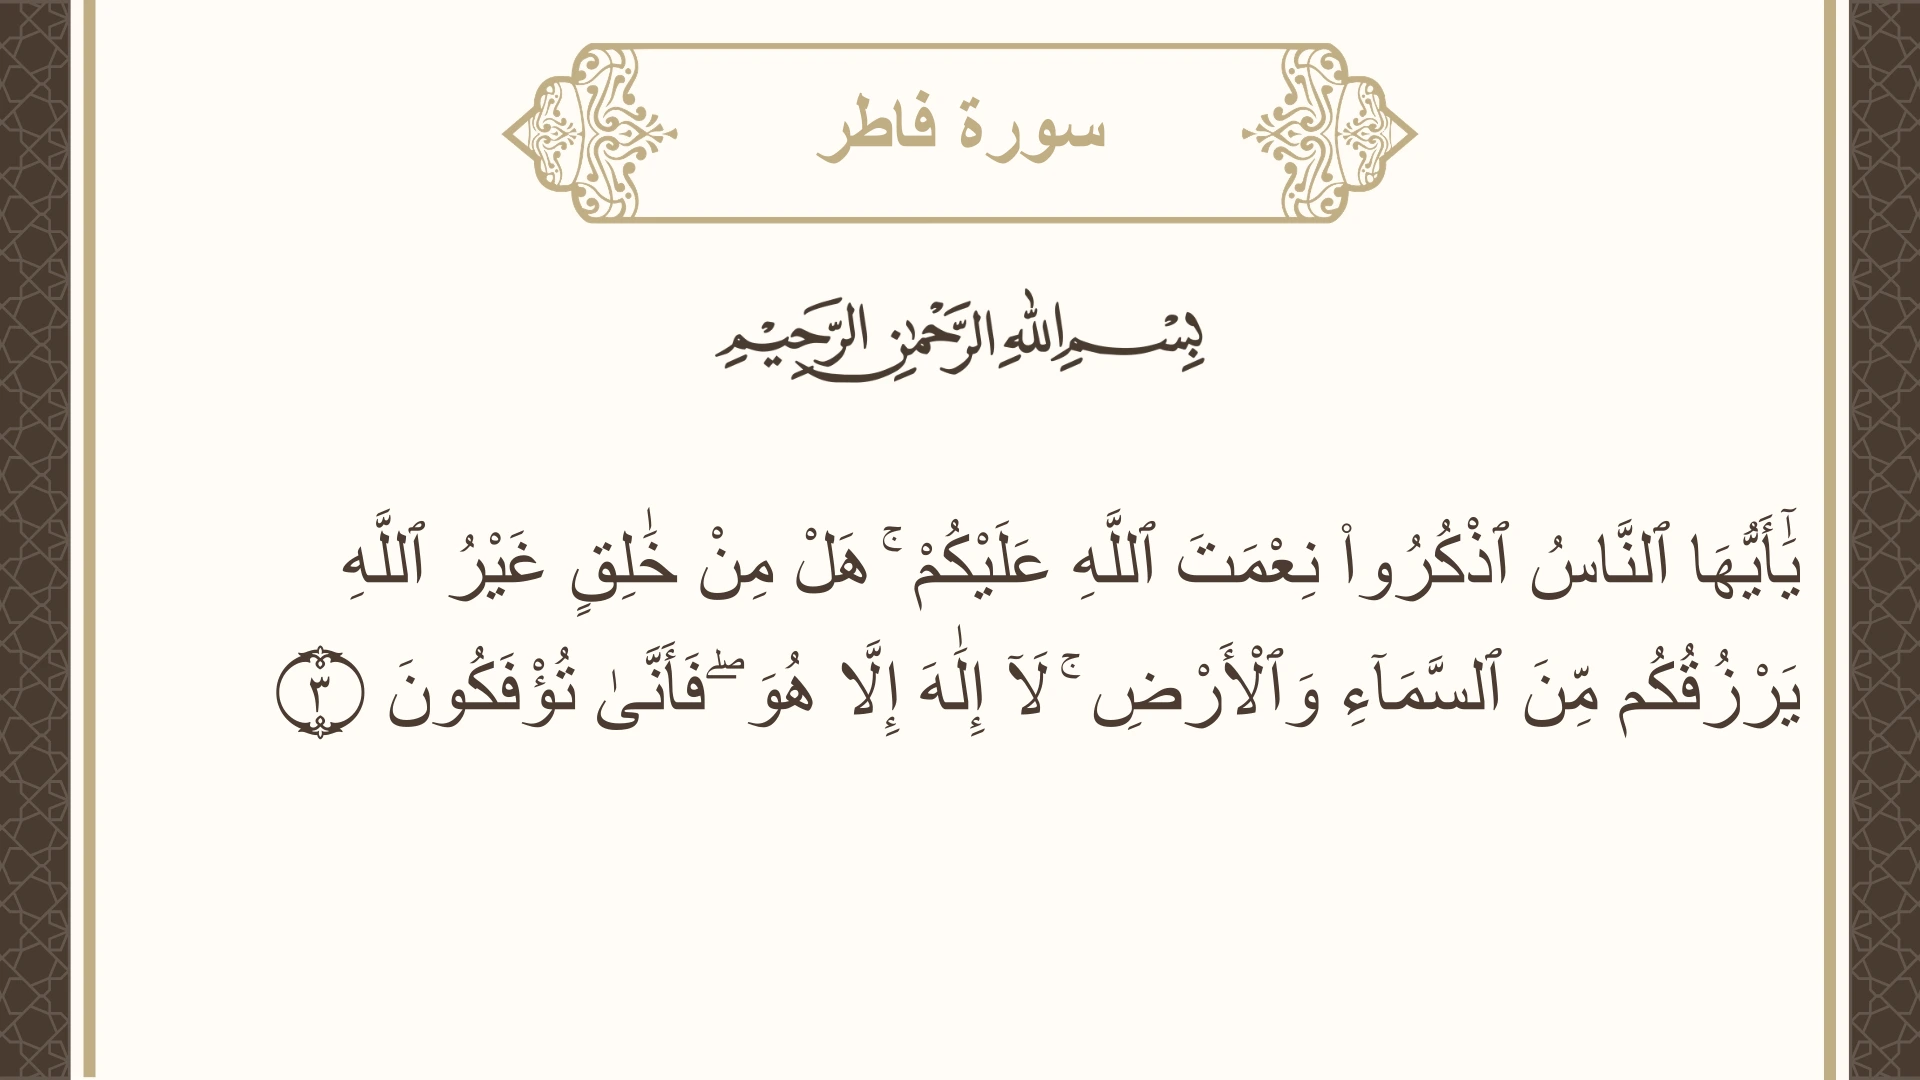 سورة فاطر
بِسْمِ اللهِ الرَّحْمٰنِ الرَّحِيْمِ
يَٰٓأَيُّهَا ٱلنَّاسُ ٱذْكُرُوا۟ نِعْمَتَ ٱللَّهِ عَلَيْكُمْ ۚ هَلْ مِنْ خَٰلِقٍ غَيْرُ ٱللَّهِ
يَرْزُقُكُم مِّنَ ٱلسَّمَآءِ وَٱلْأَرْضِ ۚ لَآ إِلَٰهَ إِلَّا هُوَ ۖ فَأَنَّىٰ تُؤْفَكُونَ ٣